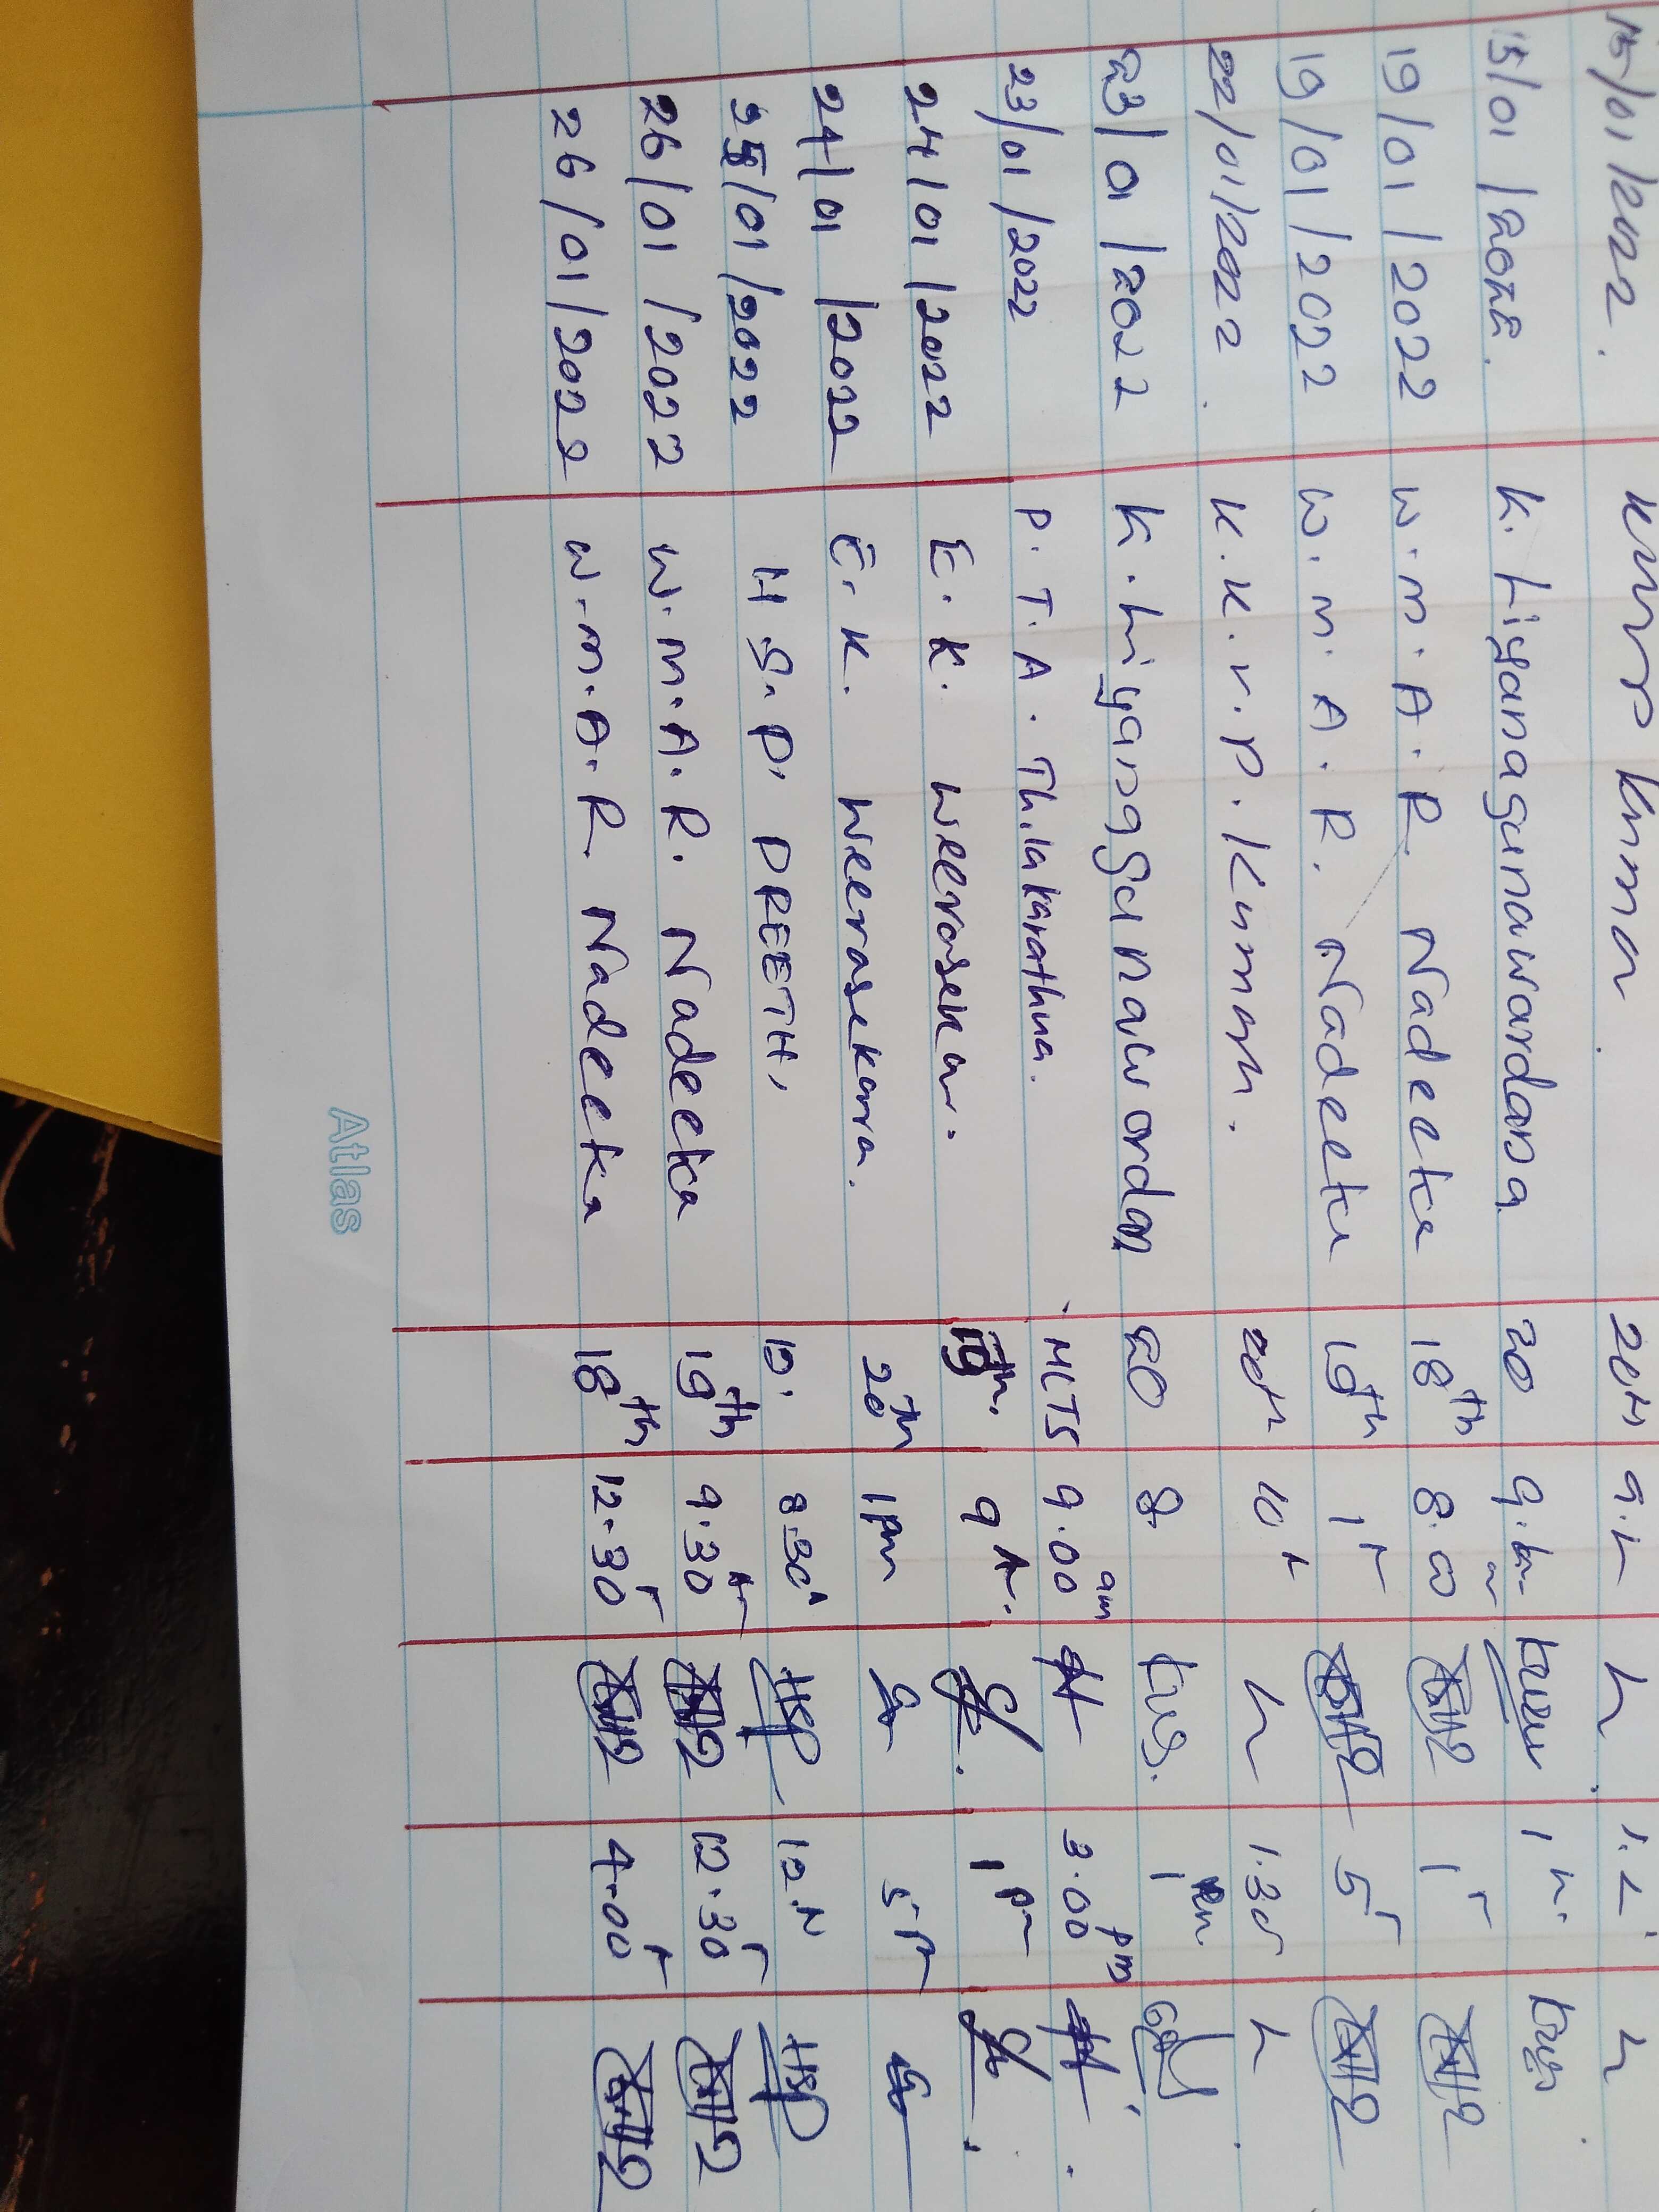 15/01/2022. KKVP Kumar. 20th 9. 1.
15/01/2022. K. Liyanagunawardana 20 9. 1
19/01/2022 W.M.A.R. Nadeeka 18th 8.00 1
19/01/2022 W.M.A.R. Nadeeka 19th 1 5
22/01/2022. K.K.V.P. Kumar. 20th 10 1.30
23/01/2022 K. Liyanagunawardana 20 8. 1 pm
23/01/2022 P.T.A. Thilakarathna. MLTS 9.00 am 3.00 pm
24/01/2022 E.K. Weerasekara. 19th. 9 A. 1 pm
24/01/2022 E.K. Weerasekara. 20th 1pm 5 P
25/01/2022 H.S.P. PREETH, 8.30 HSP 12.N HSP
26/01/2022 W.M.A.R. Nadeeka 19th 9.30 12.30
26/01/2022 W.M.A.R. Nadeeka 18th 12.30 4.00
Atlas